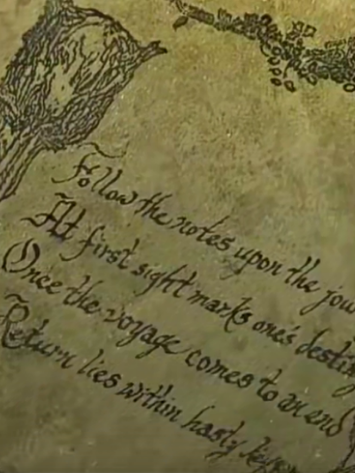 Follow the notes upon the jou
At first sight marks one's destin
Once the voyage comes to an end
Return lies within hasty